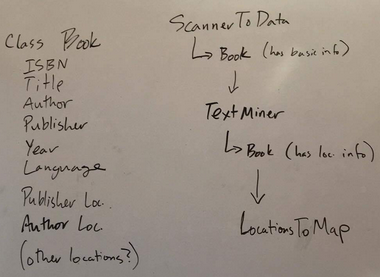 Class Book
ISBN
Title
Author
Publisher
Year
Language
Publisher Loc.
Author Loc.
(other locations?)
ScannerToData
Book (has basic info)
TextMiner
Book (has loc. info)
LocationsToMap